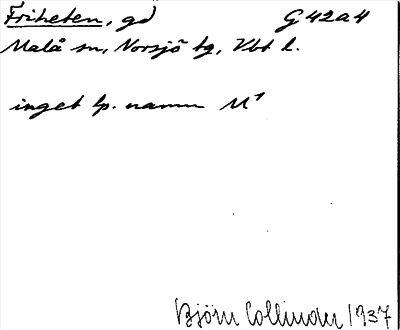 Friheten, gd G 42a4
Malå sn, Norsjö tg, Vbt l.
inget lp. namn M¹
Björn Collinder 1937